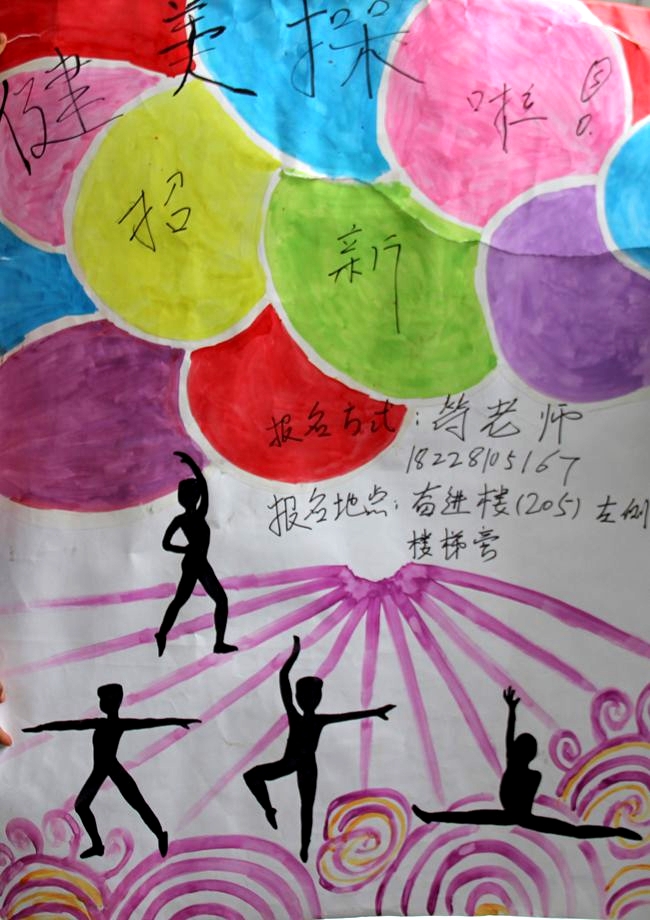 健美操
招新啦!
报名方式:符老师
18228105167
报名地点:奋进楼(205)左侧
楼梯旁